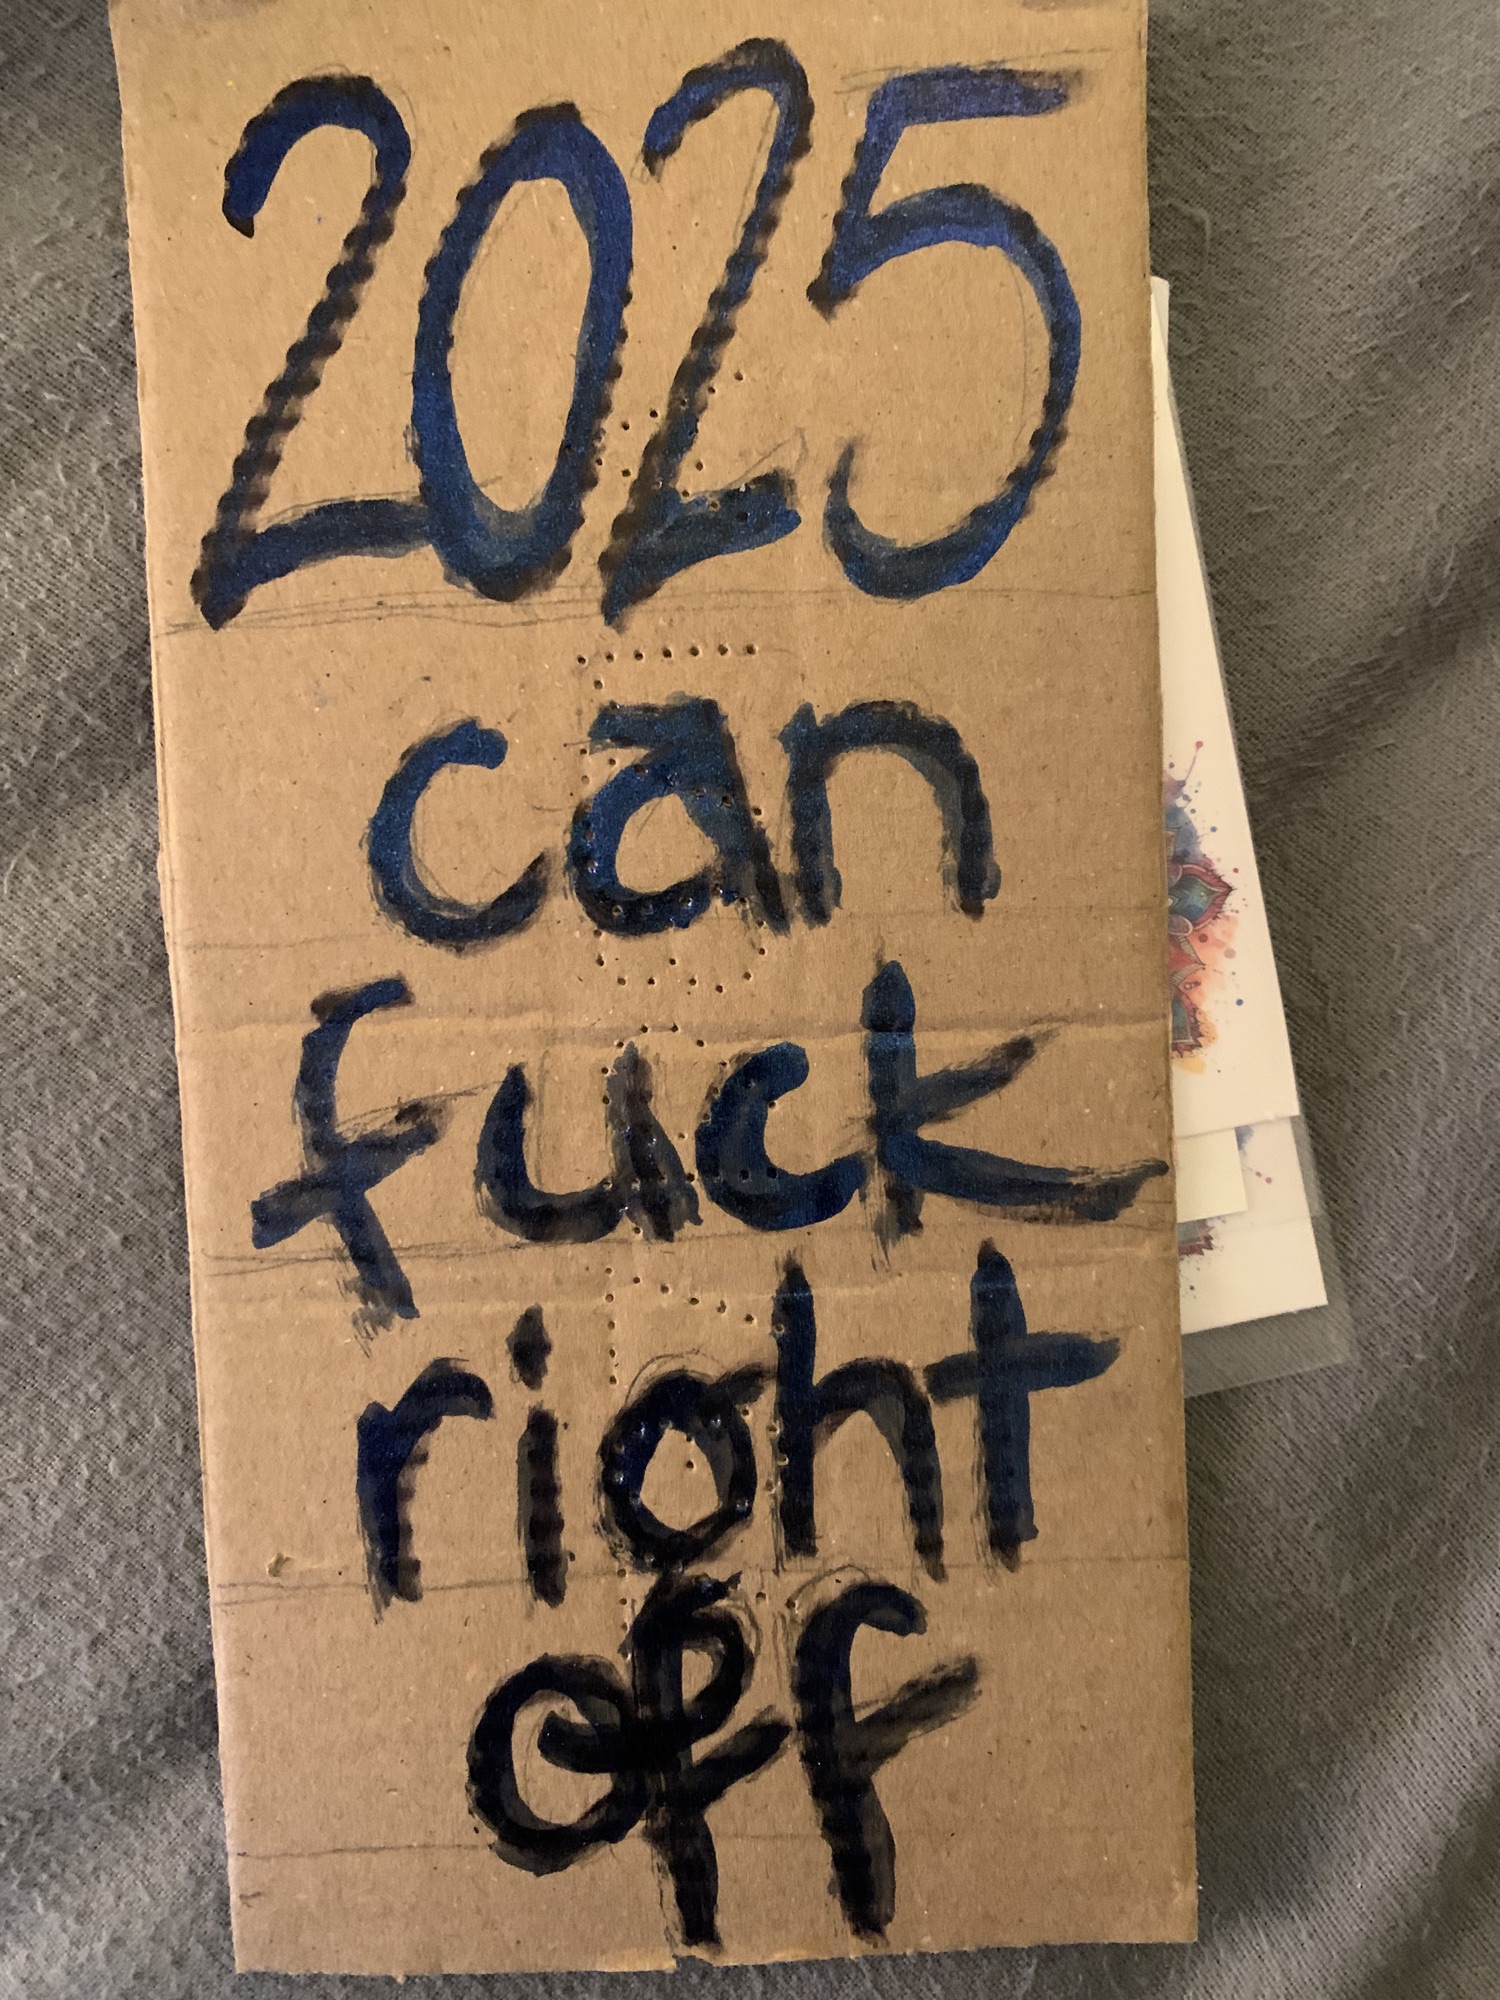 2025
can
fuck
right
off